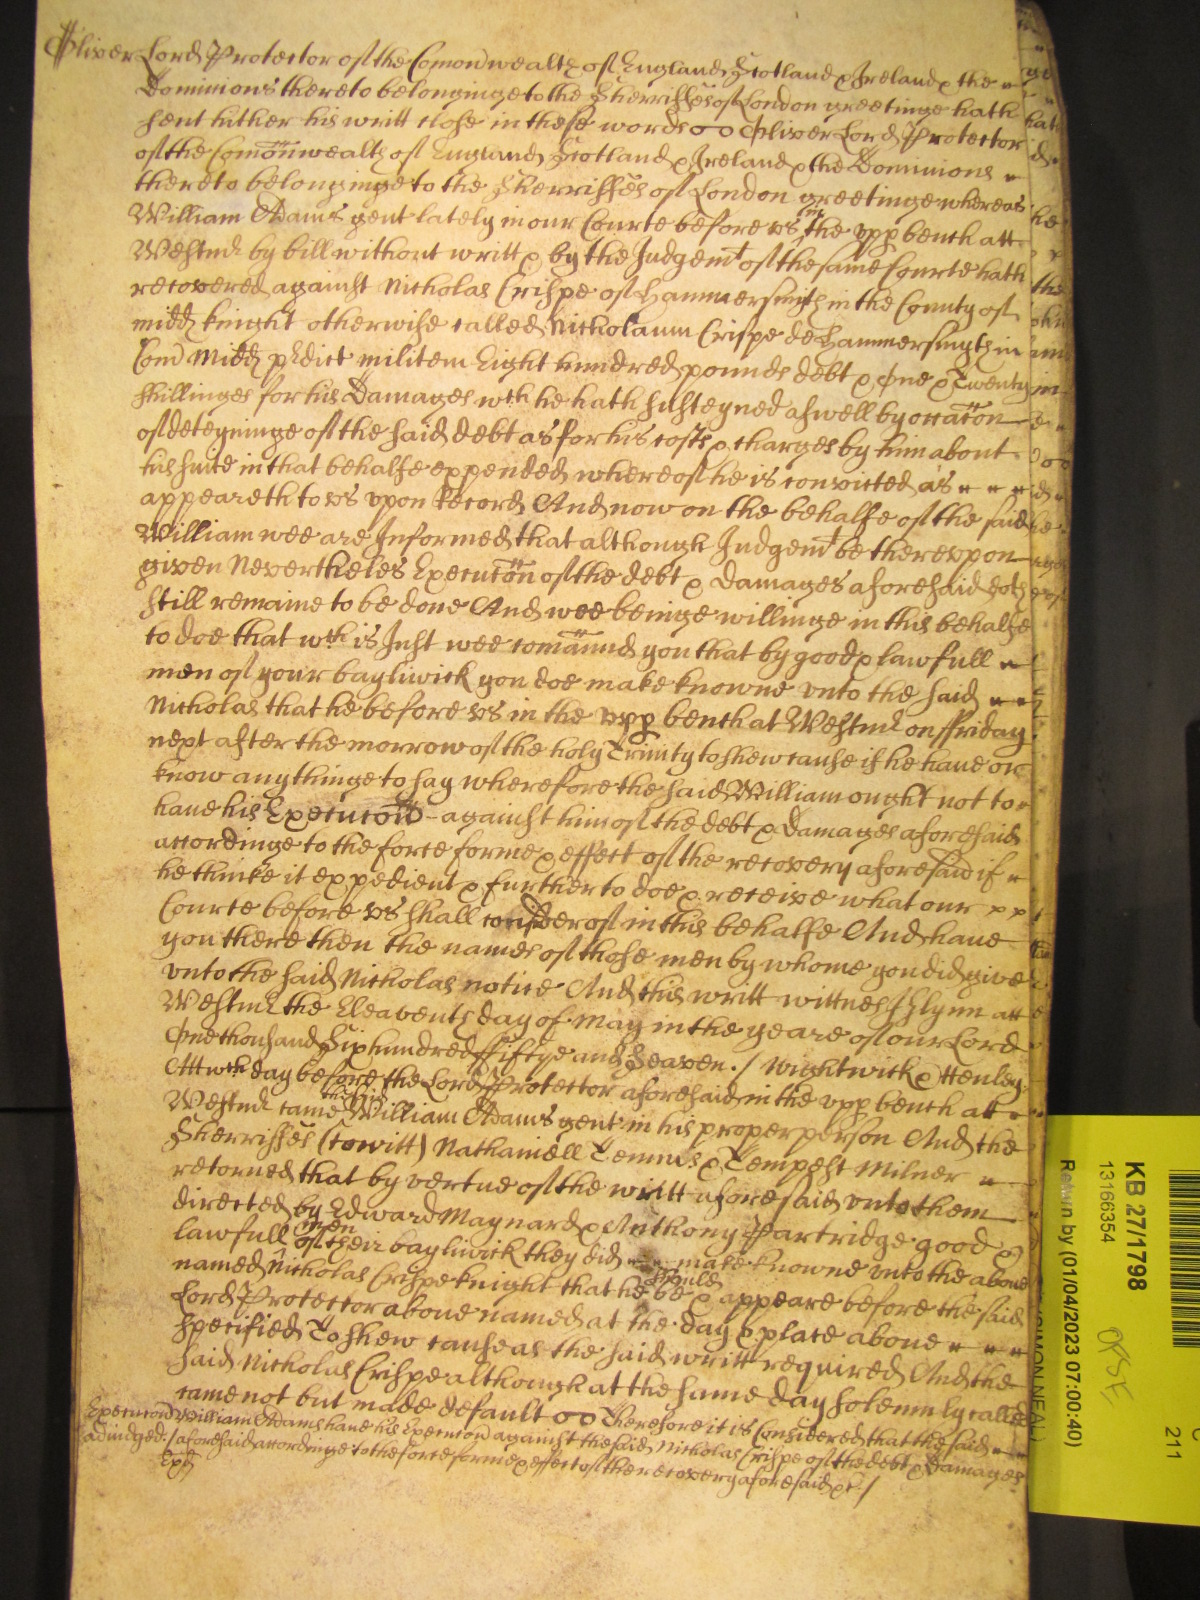 Oliver Lord Protector of the Comonwealth of England Scotland & Ireland & the
Dominions thereto belonginge to the Sherriffes of London greetinge hath
sent hither his writt close in these words Oliver Lord Protector
of the Comonwealth of England Scotland & Ireland & the Dominions
thereto belonginge to the Sherriffes of London greetinge whereas
William Adams gent lately in our Courte before vs in the vpp bench att
Westmr by bill without writt & by the Judgemt of the same Courte hath
recovered against Nicholas Crispe of Hammersmith in the County of
Midd knight otherwise called Nicholaum Crispe de Hammersmyth in
Com Midd predict militem Eight hundred pounds debt & One & Twenty
shillinges for his Damages wch he hath susteyned aswell by occacon
of deteyninge of the said debt as for his costs & charges by him about
his suite in that behalfe expended whereof he is convicted as
appeareth to vs vpon Record And now on the behalfe of the said
William wee are Informed that although Judgemt be therevpon
given Nevertheles Execucon of the debt & Damages aforesaid doth
still remaine to be done And wee beinge willinge in this behalfe
to doe that wch is Just wee comaund you that by good & lawfull
men of your bayliwick you doe make knowne vnto the said
Nicholas that he before vs in the vpp bench at Westmr on ffriday
next after the morrow of the holy Trinity to shew cause if he haue or
know any thinge to say wherefore the said William ought not to
haue his Execucon against him of the debt & Damages aforesaid
accordinge to the force forme & effect of the recovery aforesaid if
he thinke it expedient & further to doe & receive what our
Courte before vs shall consider of in this behalfe And haue
you there then the names of those men by whome you did give
vnto the said Nicholas notice And this writt wittnes J Glynn att
Westmr the Eleaventh day of May in the yeare of our Lord
One thousand Six hundred ffiftye and Seaven./ Wightwick & Henley
Att wch day before the Lord Protector aforesaid in the vpp bench att
Westmr came the said William Adams gent in his proper person And the
Sherriffes (to witt) Nathaniell Temms & Tempest Milner
retorned that by vertue of the writt aforesaid vnto them
directed by Edward Maynard & Anthony Partridge good &
lawfull men of their bayliwick they did make knowne vnto the aboue
named Nicholas Crispe knight that he should be & appeare before the said
Lord Protector aboue named at the day & place aboue
specified To shew cause as the said writt required And the
said Nicholas Crispe although at the same day solemnly called
came not but made default Therefore it is Considered that the said
Execucon William Adams haue his Execucon against the said Nicholas Crispe of the debt & Damages
adiudged:/ aforesaid accordinge to the force forme & effect of the recovery aforesaid &c./
KB 27/1798
13166354
Return by (01/04/2023 07:00:40)
211